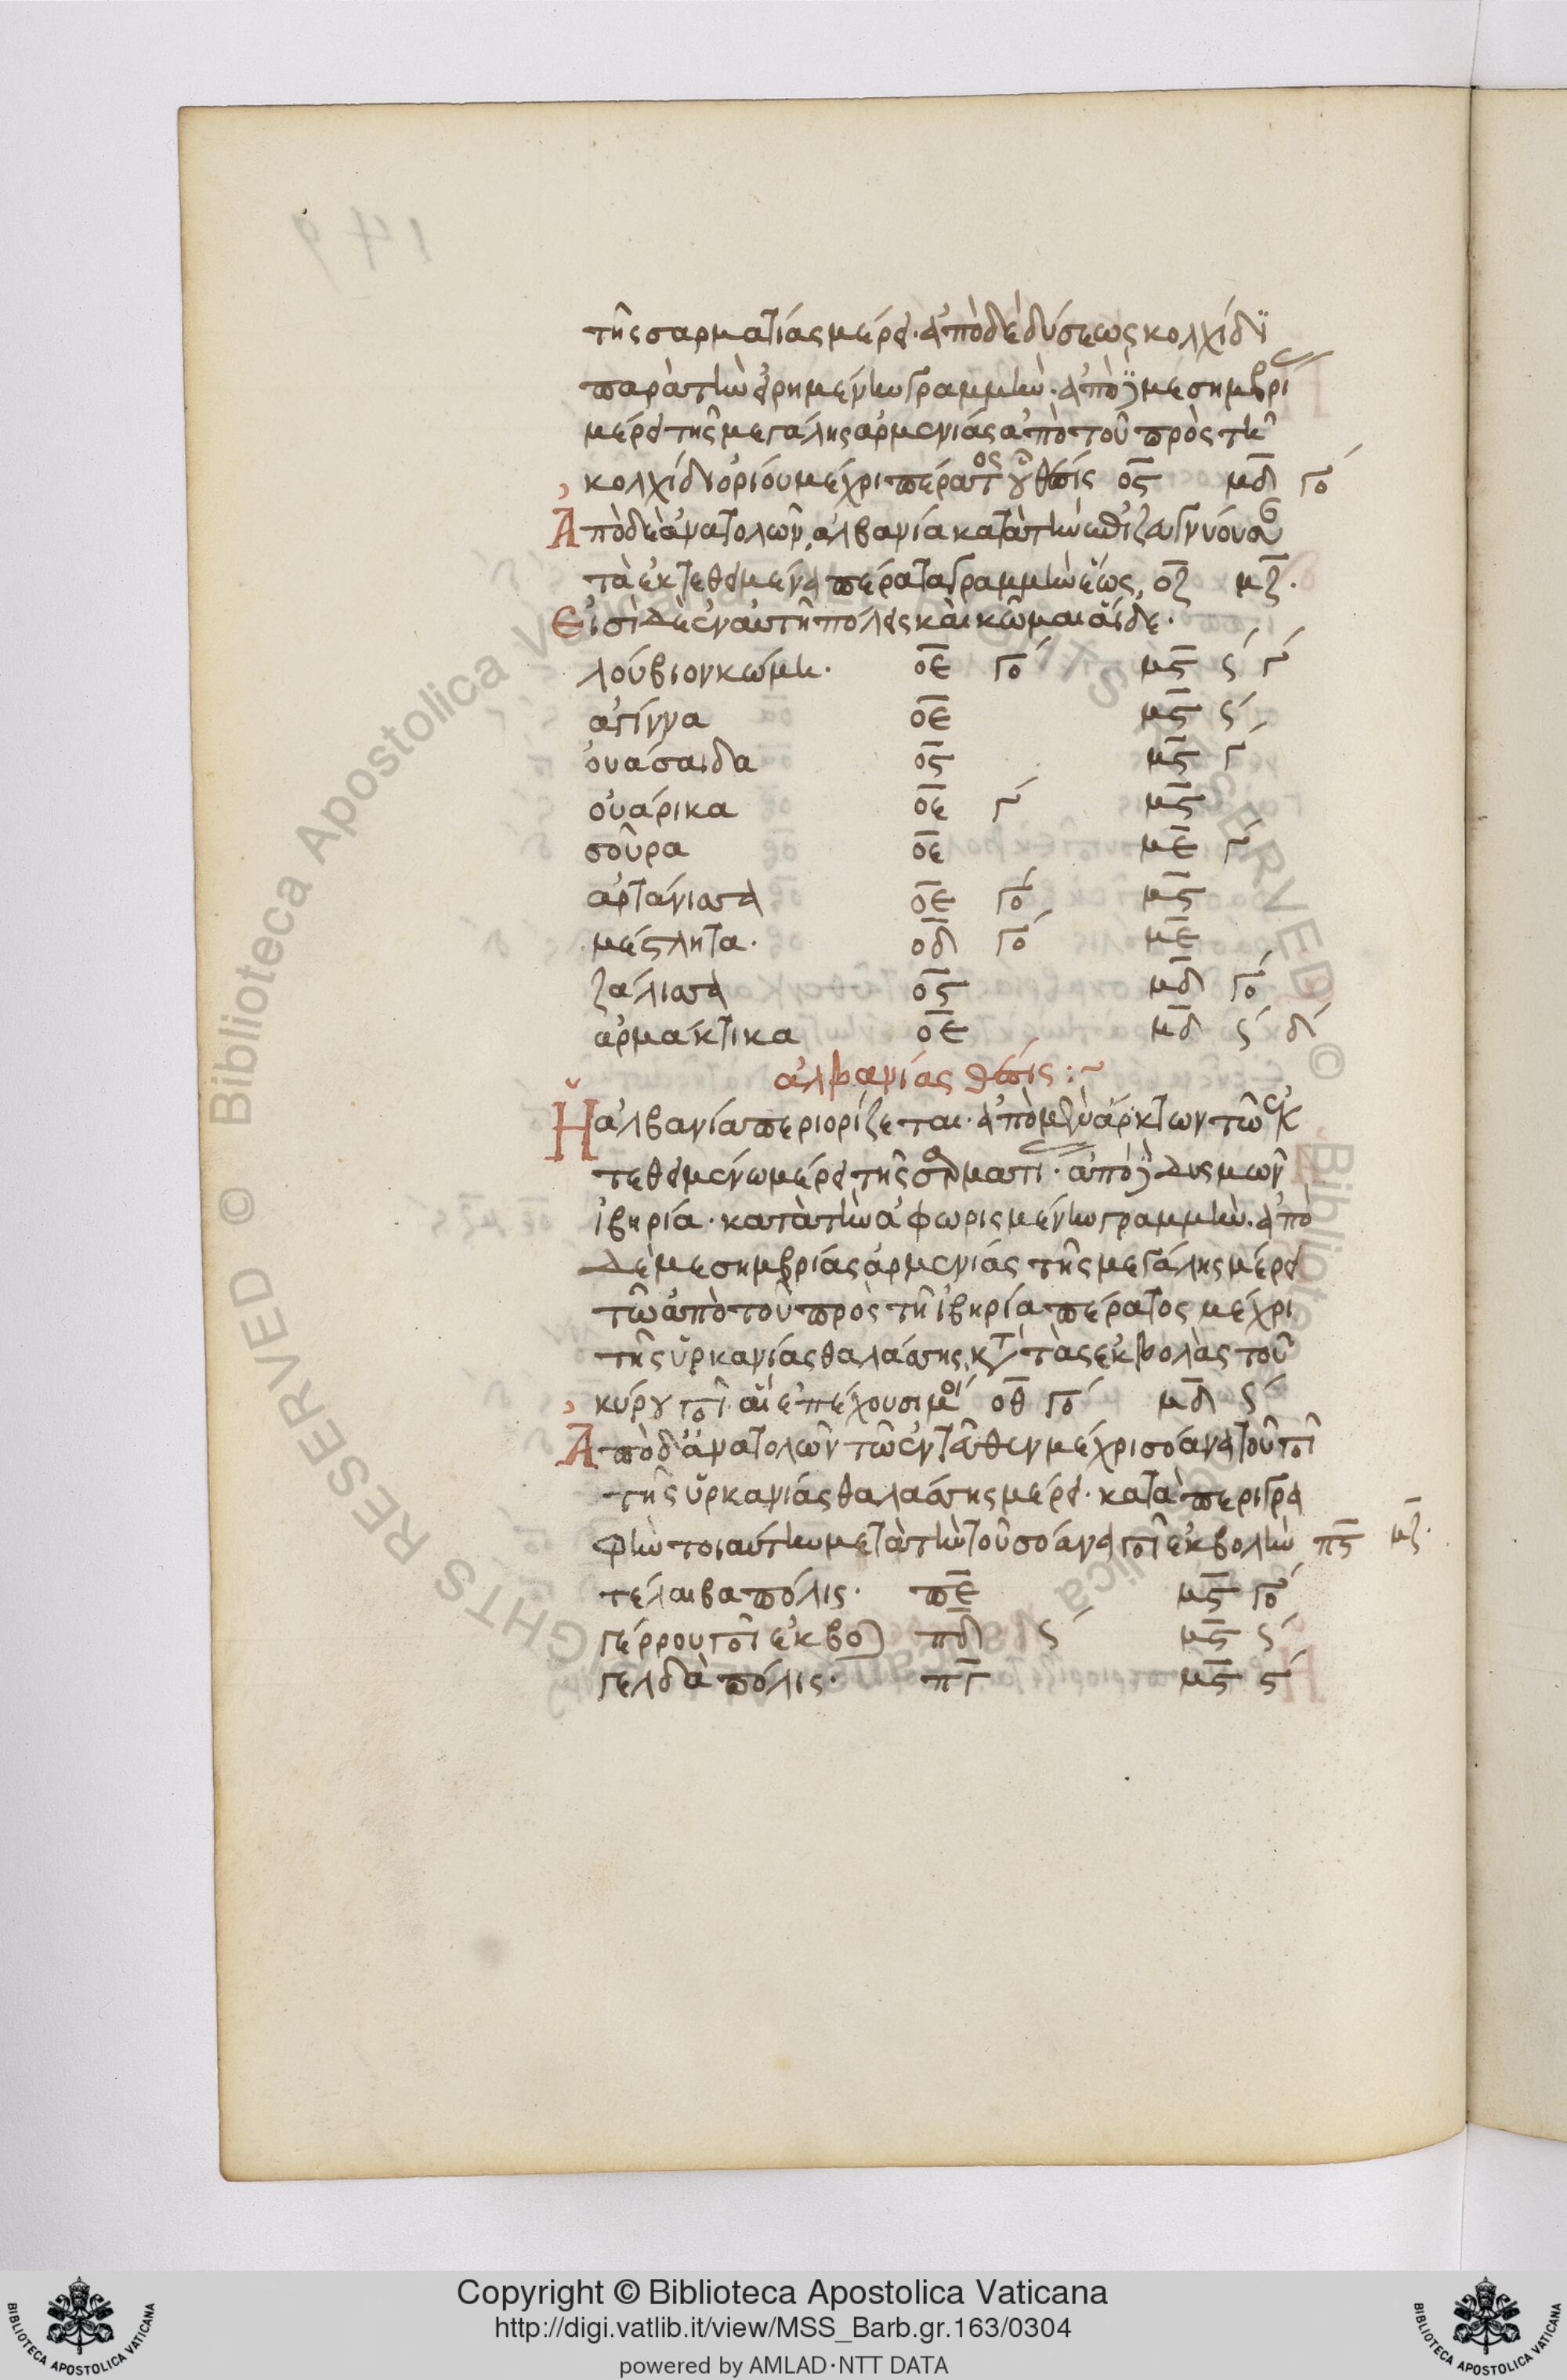 τῆς σαρματίας μέρει· ἀπὸ δὲ δύσεως κολχίδι
παρὰ τὴν εἰρημένην γραμμὴν· ἀπὸ δὲ μεσημβρί
μέρει τῆς μεγάλης ἀρμενίας ἀπὸ τοῦ πρὸς τῆ
κολχίδι ὁρίου μέχρι πέρατος οὗ θέσις ος μδ γο
Ἀπὸ δὲ ἀνατολῶν, ἀλβανία κατὰ τὴν ἐπιζευγνύουσαν
τὰ ἐκτεθειμένα πέρατα γραμμὴν ἕως, οζ μζ.
Εἰσὶ δὲ ἐν αὐτῆ πόλεις καὶ κῶμαι αἵδε.
λούβιον κώμη. οε γο μς ς γ
ἀγίννα οε μς ς
ὀυάσαιδα ος μς γ
οὐάρικα οε γ μς
σοῦρα οε με γ
ἀρτάνισσα οε γο μς
μέςλητα. οδ γο με
ζάλισσα ος μδ γο
ἀρμάκτικα οε μδ ς δ
ἀλβανίας θέσις :~
Ἡ ἀλβανία περιορίζεται· ἀπὸ μὲν ἄρκτων τῶ ἐκ
τεθειμένω μέρει τῆς σαρματί· ἀπὸ δὲ δυσμῶν
ἰβηρία· κατὰ τὴν ἀφωρισμένην γραμμὴν. ἀπὸ
δὲ μεσημβρίας ἀρμενίας τῆς μεγάλης μέρει
τῶ ἀπὸ τοῦ πρὸς τῆ ἰβηρία πέρατος μέχρι
τῆς ὑρκανίας θαλάσσης, κατὰ τὰς ἐκβολὰς τοῦ
κύρου ποτ. αἳ ἐπέχουσι μοί οθ γο μδ ς
Ἀπὸ δ' ἀνατολῶν τῶ ἐντεῦθεν μέχρι σοάνα τοῦ ποτ
τῆς ὑρκανίας θαλάσσης μέρει· κατὰ περιγρα
φὴν τοιαύτην μετὰ τὴν τοῦ σοάνα ποτ ἐκβολὴν πς μζ.
τέλαιβα πόλις. πε μς γο
γέρρου ποτ ἐκβο πδ ς μς ς
γελδὰ πόλις. πγ μς ς
Copyright © Biblioteca Apostolica Vaticana
http://digi.vatlib.it/view/MSS_Barb.gr.163/0304
powered by AMLAD·NTT DATA